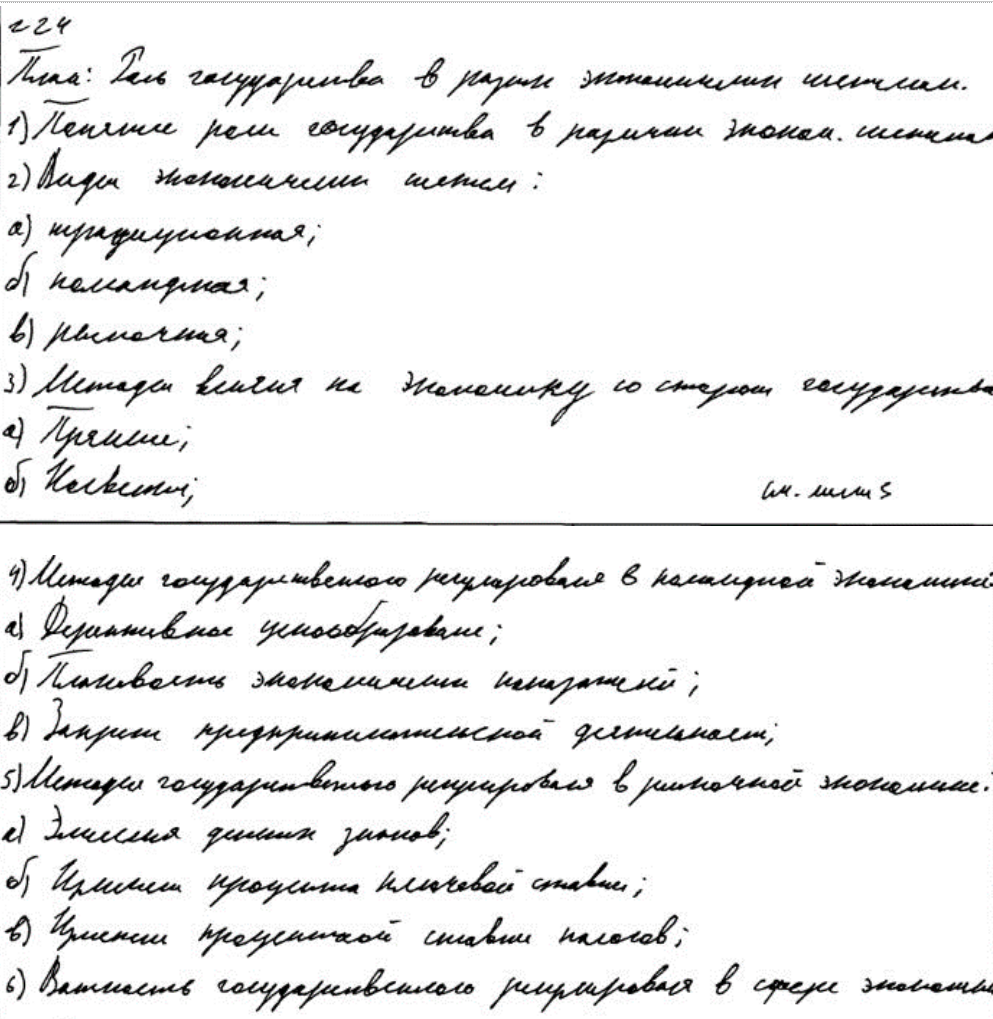 z24
План: Роль государства в разных экономических системах.
1) Понятие роли государства в различных эконом. системах
2) Виды экономических систем:
а) традиционная;
б) командная;
в) рыночная;
3) Методы влияния на экономику со стороны государства
а) Прямые;
б) Косвенные;
см. лист 5
4) Методы государственного регулирования в командной экономике
а) Директивное ценообразование;
б) Плановость экономических показателей;
в) Запрет предпринимательской деятельности;
5) Методы государственного регулирования в рыночной экономике:
а) Эмиссия денежных знаков;
б) Изменение процента ключевой ставки;
в) Изменение процентной ставки налогов;
6) Важность государственного регулирования в сфере экономики